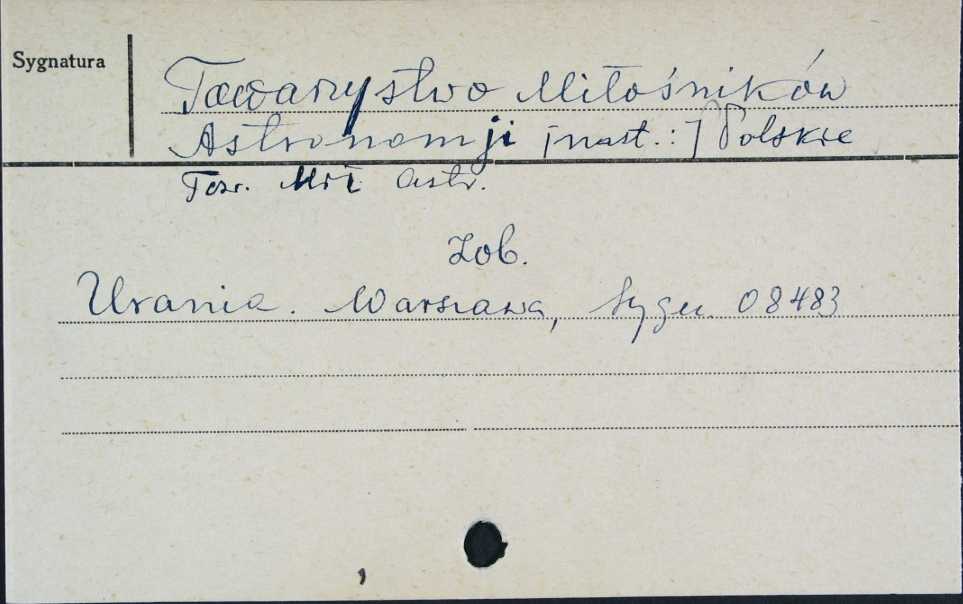 Sygnatura
Towarzystwo Miłośników
Astronomji [nast.:] Polskie
Tow. Mił. Astr.
Zob.
Urania. Warszawa, Sygn. 08483